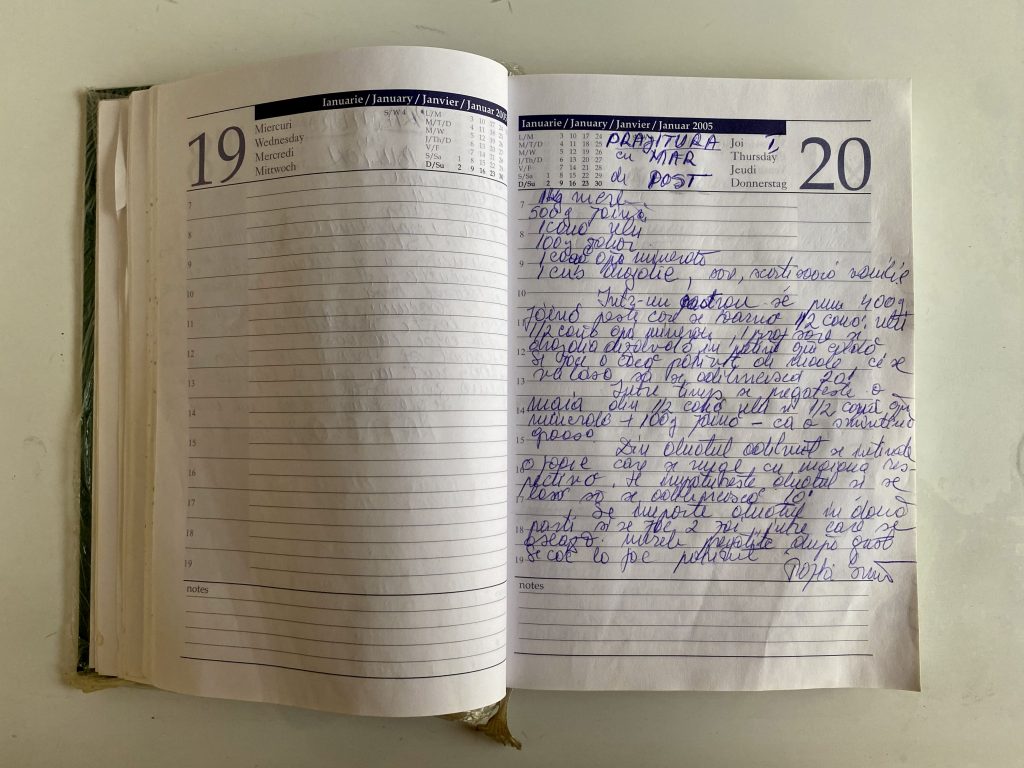 Ianuarie / January / Janvier / Januar 2005
19
Miercuri
Wednesday
Mercredi
Mittwoch
S/W 4
L/M 3 10 17 24
M/T/D 4 11 18 25
M/W 5 12 19 26
J/Th/D 6 13 20 27
V/F 7 14 21 28
S/Sa 1 8 15 22 29
D/Su 2 9 16 23 30
7
8
9
10
11
12
13
14
15
16
17
18
19
notes
Ianuarie / January / Janvier / Januar 2005
L/M 3 10 17 24
M/T/D 4 11 18 25
M/W 5 12 19 26
J/Th/D 6 13 20 27
V/F 7 14 21 28
S/Sa 1 8 15 22 29
D/Su 2 9 16 23 30
PRAJITURA
cu MAR
de POST
Joi
Thursday
Jeudi
Donnerstag
20
7
8
9
10
11
12
13
14
15
16
17
18
19
1kg mere
500g faina
1 cana ulei
100g zahar
1 cana apa minerala
1 cub drojdie, sare, scortisoara vanilie
Intr-un castron se pun 400g
faina peste care se toarna 1/2 cana ulei
1/2 cana apa minerala, 1 praf sare si
drojdia dizolvata in putina apa calda
Se face o coca potrivit de moale ce se
va lasa sa se odihneasca 20'
Intre timp se pregateste o
maia din 1/2 cana ulei si 1/2 cana apa
minerala + 100g faina - ca o smantana
groasa
Din aluatul odihnit se intinde
o foaie care se unge cu maiaua res-
pectiva. Se impatureste aluatul si se
lasa sa se odihneasca 10'
Se imparte aluatul in doua
parti si se fac 2 foi intre care se
aseaza merele pregatite dupa gust
Se coc la foc potrivit
notes